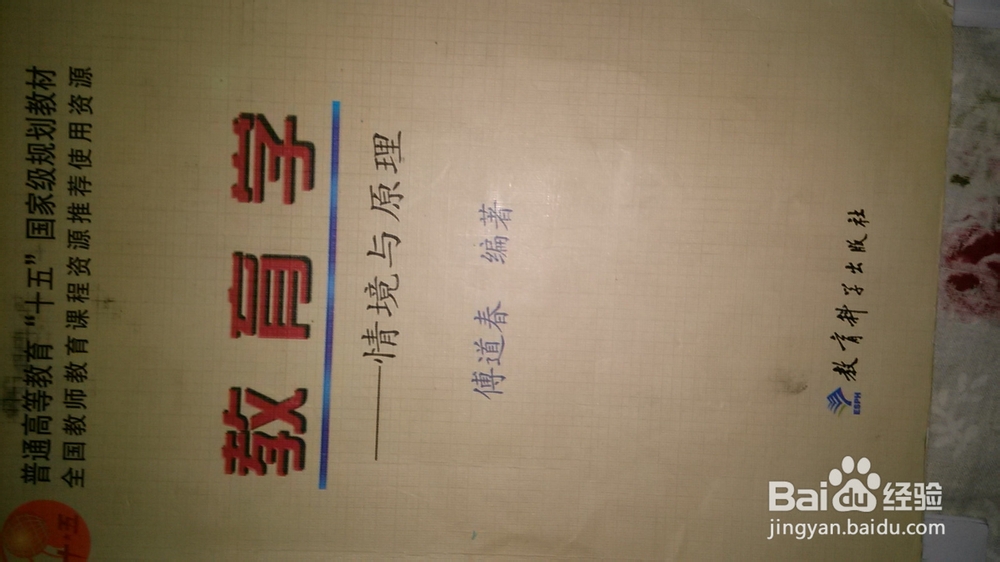 普通高等教育“十五”国家级规划教材
全国教师教育课程资源推荐使用资源
教育学
——情境与原理
傅道春 编著
ESPH
教育科学出版社
十·五
Bai du 经验
jingyan.baidu.com